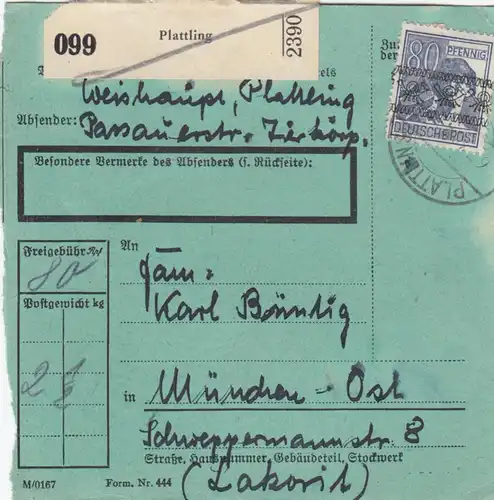 Plattling
099
2390
80 PFENNIG
DEUTSCHE POST
PLATTLIN
Zu
der
els
Weishaupt, Plattling
Absender: Passauerstr.
Besondere Vermerke des Absenders (s. Rückseite):
Freigebühr
80
Postgewicht kg
2 ½
An
Fam:
Karl Böintig
in München - Ost
Schweppermannstr. 8
Straße, Hausnummer, Gebäudeteil, Stockwerk
(Lakorit)
M/0167
Form. Nr. 444